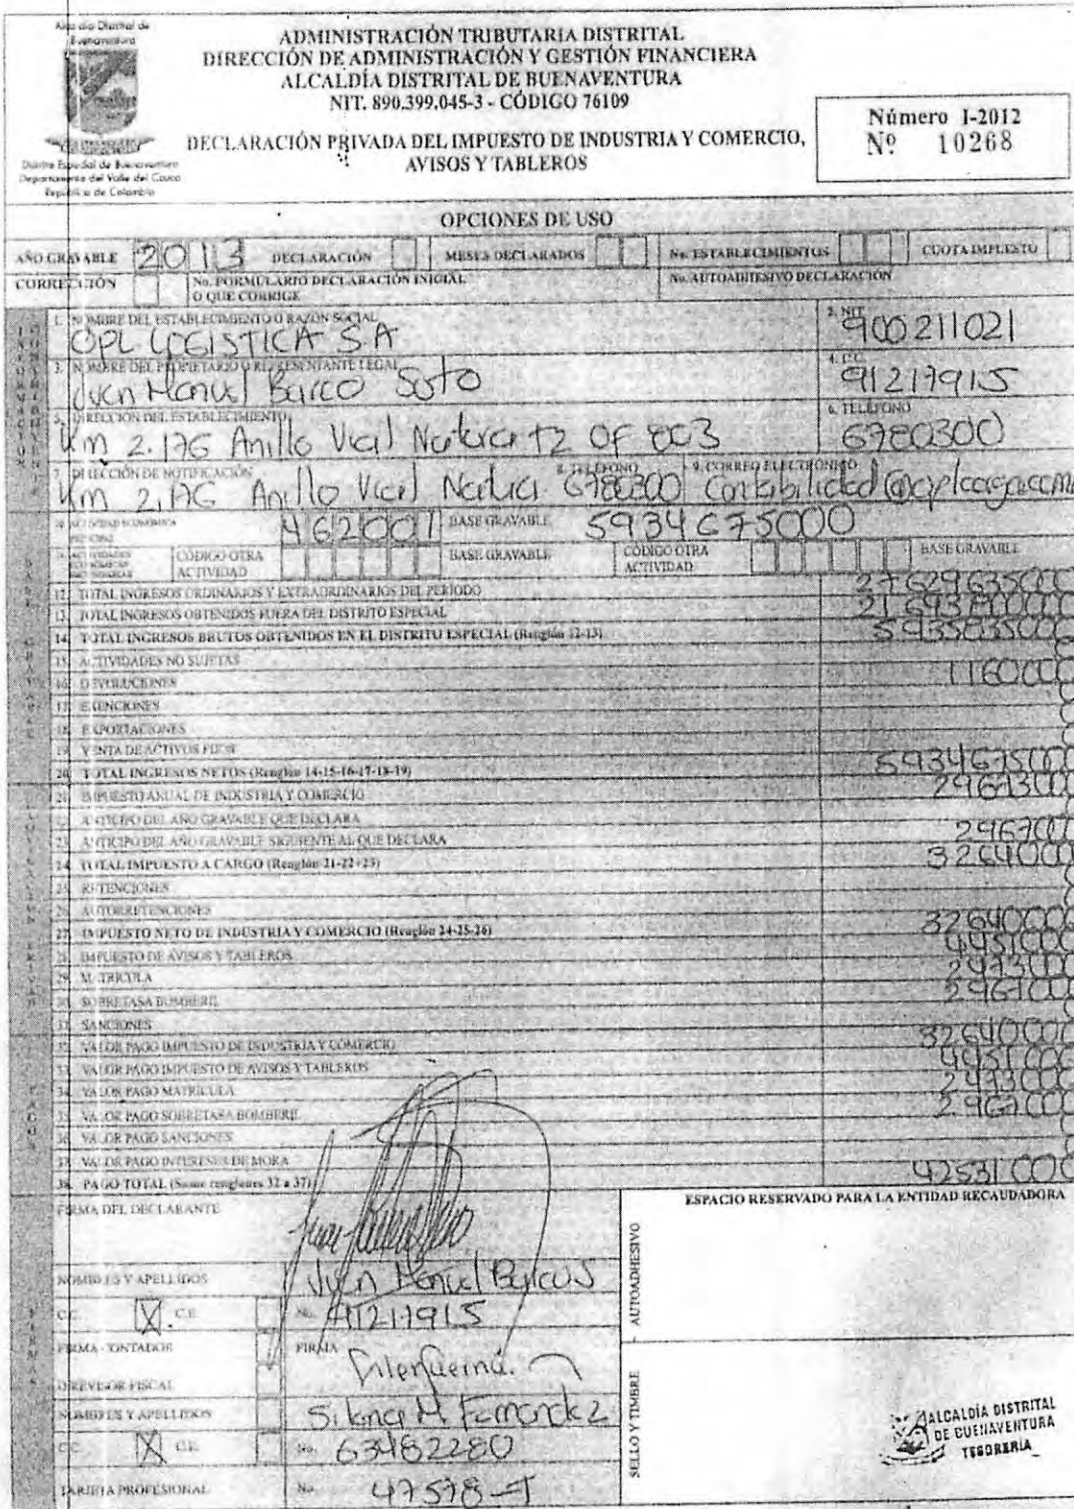 Alcaldía Distrital de
Buenaventura
Distrito Especial de Buenaventura
Departamento del Valle del Cauca
República de Colombia
ADMINISTRACIÓN TRIBUTARIA DISTRITAL
DIRECCIÓN DE ADMINISTRACIÓN Y GESTIÓN FINANCIERA
ALCALDÍA DISTRITAL DE BUENAVENTURA
NIT. 890.399.045-3 - CÓDIGO 76109
DECLARACIÓN PRIVADA DEL IMPUESTO DE INDUSTRIA Y COMERCIO,
AVISOS Y TABLEROS
Número I-2012
Nº 10268
OPCIONES DE USO
AÑO GRAVABLE 2013 DECLARACIÓN MESES DECLARADOS No. ESTABLECIMIENTOS CUOTA IMPUESTO
CORRECCIÓN No. FORMULARIO DECLARACIÓN INICIAL No. AUTOADHESIVO DECLARACIÓN
O QUE CORRIGE
1. NOMBRE DEL ESTABLECIMIENTO O RAZÓN SOCIAL 2. NIT
OPL LOGISTICA SA 900211021
3. NOMBRE DEL PROPIETARIO O REPRESENTANTE LEGAL 4. C.C.
Juan Manuel Barco Soto 91217915
5. DIRECCIÓN DEL ESTABLECIMIENTO 6. TELÉFONO
Km 2.176 Anillo Vial Natura T2 OF 803 6780300
7. DIRECCIÓN DE NOTIFICACIÓN 8. TELÉFONO 9. CORREO ELECTRÓNICO
Km 2.176 Anillo Vial Natura 6780300 contabilidad@oplcarga.com
10. ACTIVIDAD ECONÓMICA PRINCIPAL 462001 BASE GRAVABLE 5934675000
CÓDIGO OTRA BASE GRAVABLE CÓDIGO OTRA BASE GRAVABLE
ACTIVIDAD ACTIVIDAD
12. TOTAL INGRESOS ORDINARIOS Y EXTRAORDINARIOS DEL PERÍODO 27629635000
13. TOTAL INGRESOS OBTENIDOS FUERA DEL DISTRITO ESPECIAL 21693800000
14. TOTAL INGRESOS BRUTOS OBTENIDOS EN EL DISTRITO ESPECIAL (Renglón 12-13) 5935835000
15. ACTIVIDADES NO SUJETAS 0
16. DEVOLUCIONES 1160000
17. EXENCIONES 0
18. EXPORTACIONES 0
19. VENTA DE ACTIVOS FIJOS 0
20. TOTAL INGRESOS NETOS (Renglón 14-15-16-17-18-19) 5934675000
21. IMPUESTO ANUAL DE INDUSTRIA Y COMERCIO 29673000
22. ANTICIPO DEL AÑO GRAVABLE QUE DECLARA
23. ANTICIPO DEL AÑO GRAVABLE SIGUIENTE AL QUE DECLARA 2967000
24. TOTAL IMPUESTO A CARGO (Renglón 21-22+23) 32640000
25. RETENCIONES 0
26. AUTORRETENCIONES 0
27. IMPUESTO NETO DE INDUSTRIA Y COMERCIO (Renglón 24-25-26) 32640000
28. IMPUESTO DE AVISOS Y TABLEROS 4451000
29. MATRÍCULA 2473000
30. SOBRETASA BOMBERIL 2967000
31. SANCIONES 0
32. VALOR PAGO IMPUESTO DE INDUSTRIA Y COMERCIO 32640000
33. VALOR PAGO IMPUESTO DE AVISOS Y TABLEROS 4451000
34. VALOR PAGO MATRÍCULA 2473000
35. VALOR PAGO SOBRETASA BOMBERIL 2967000
36. VALOR PAGO SANCIONES 0
37. VALOR PAGO INTERESES DE MORA 0
38. PAGO TOTAL (Sume renglones 32 a 37) 42531000
FIRMA DEL DECLARANTE
ESPACIO RESERVADO PARA LA ENTIDAD RECAUDADORA
AUTOADHESIVO
NOMBRES Y APELLIDOS Juan Manuel Barco S
C.C. X C.E. No. 91217915
FIRMA - CONTADOR FIRMA
REVISOR FISCAL
NOMBRES Y APELLIDOS Silena M Fernandez
C.C. X C.E. No. 63482280
TARJETA PROFESIONAL No. 47578-T
SELLO Y TIMBRE
ALCALDÍA DISTRITAL
DE BUENAVENTURA
TESORERÍA